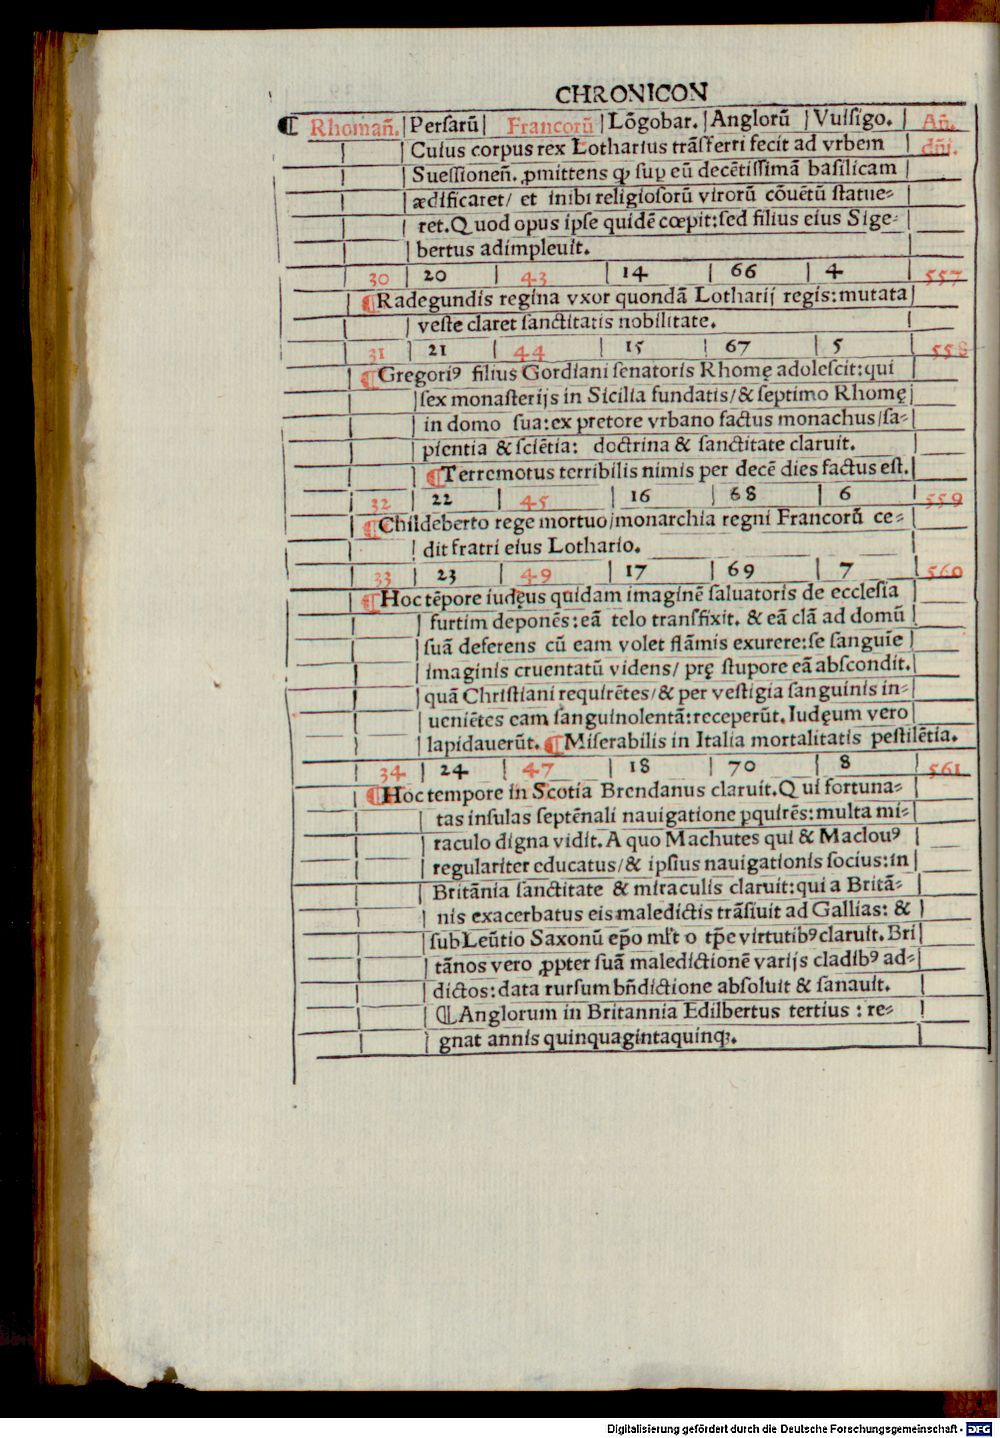 CHRONICON
¶ Rhomañ. | Persarū | Francorū | Lōgobar. | Anglorū | Vuisigo. | Añ.
Cuius corpus rex Lotharius trāsferri fecit ad vrbem dñi.
Suessioneñ. ꝓmittens ꝙ suꝑ eū decētissimā basilicam
ædificaret/ et inibi religiosorū virorū cōuētū statue⸗
ret. Quod opus ipse quidē cœpit: sed filius eius Sige⸗
bertus adimpleuit.
30 | 20 | 43 | 14 | 66 | 4 | 557
¶Radegundis regina vxor quondā Lotharij regis: mutata
veste claret sanctitatis nobilitate.
31 | 21 | 44 | 15 | 67 | 5 | 558
¶Gregoriꝰ filius Gordiani senatoris Rhomę adolescit: qui
sex monasterijs in Sicilia fundatis/ & septimo Rhomę
in domo sua: ex pretore vrbano factus monachus/ sa⸗
pientia & sciētia: doctrina & sanctitate claruit.
¶Terremotus terribilis nimis per decē dies factus est.
32 | 22 | 45 | 16 | 68 | 6 | 559
¶Childeberto rege mortuo/ monarchia regni Francorū ce⸗
dit fratri eius Lothario.
33 | 23 | 49 | 17 | 69 | 7 | 560
¶Hoc tēpore iudęus quidam imaginē saluatoris de ecclesia
furtim deponēs: eā telo transfixit. & eā clā ad domū
suā deferens cū eam volet flāmis exurere: se sanguīe
imaginis cruentatū videns/ prę stupore eā abscondit.
quā Christiani requirētes/ & per vestigia sanguinis in⸗
ueniētes eam sanguinolentā: receperūt. Iudęum vero
lapidauerūt. ¶Miserabilis in Italia mortalitatis pestilētia.
34 | 24 | 47 | 18 | 70 | 8 | 561
¶Hoc tempore in Scotia Brendanus claruit. Qui fortuna⸗
tas insulas septēnali nauigatione ꝑquirēs: multa mi⸗
raculo digna vidit. A quo Machutes qui & Maclouꝰ
regulariter educatus/ & ipsius nauigationis socius: in
Britānia sanctitate & miraculis claruit: qui a Britā⸗
nis exacerbatus eis maledictis trāsiuit ad Gallias: &
sub Leūtio Saxonū ep̄o ml̄t o tp̄e virtutibꝰ claruit. Bri
tānos vero ꝓpter suā maledictionē varijs cladibꝰ ad⸗
dictos: data rursum bn̄dictione absoluit & sanauit.
¶Anglorum in Britannia Edilbertus tertius : re⸗
gnat annis quinquagintaquinqꝫ.
Digitalisierung gefördert durch die Deutsche Forschungsgemeinschaft - DFG